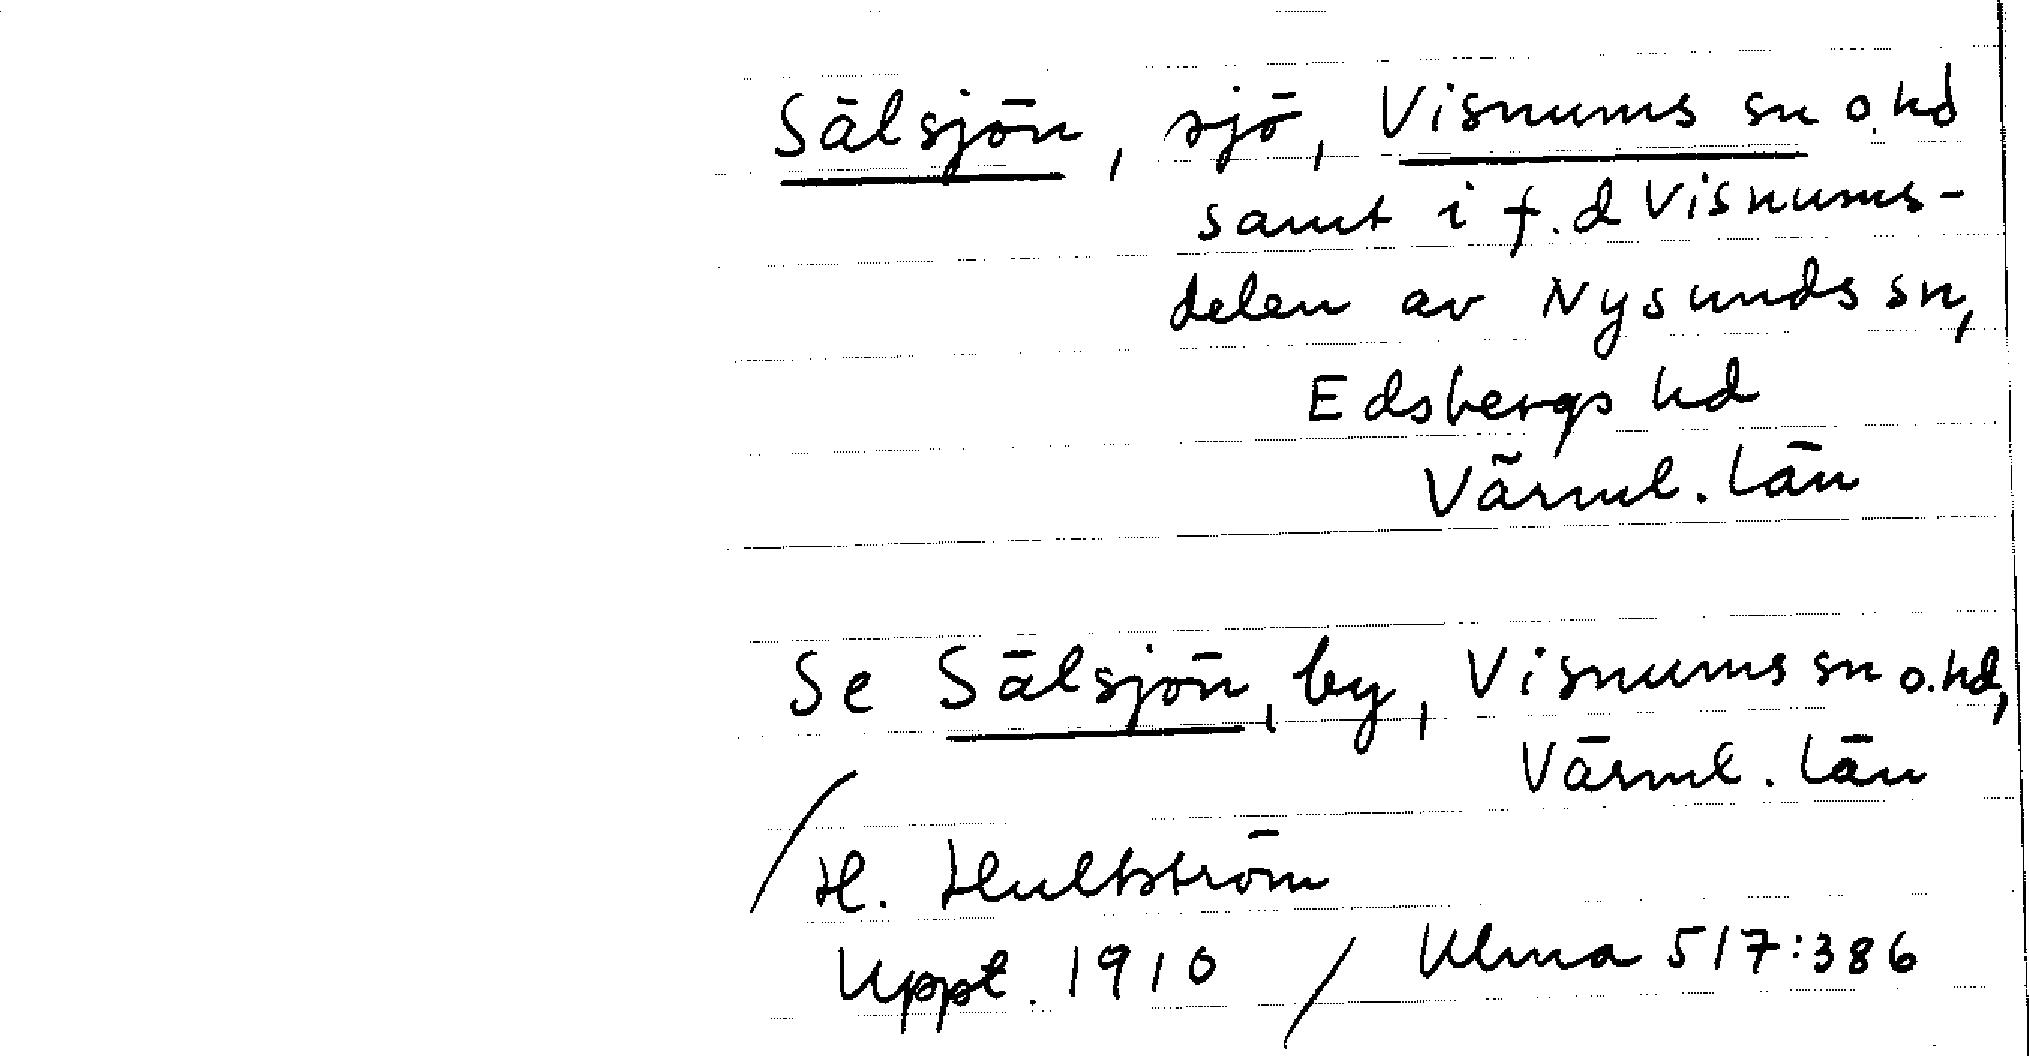 Sälsjön, sjö, Visnums sn o. hd
samt i f.d Visnums-
delen av Nysunds sn,
Edsbergs hd
Värml. län
Se Sälsjön, by, Visnums sn o. hd,
Värml. län
H. Hultström
Uppt. 1910 / Ulma 517:386